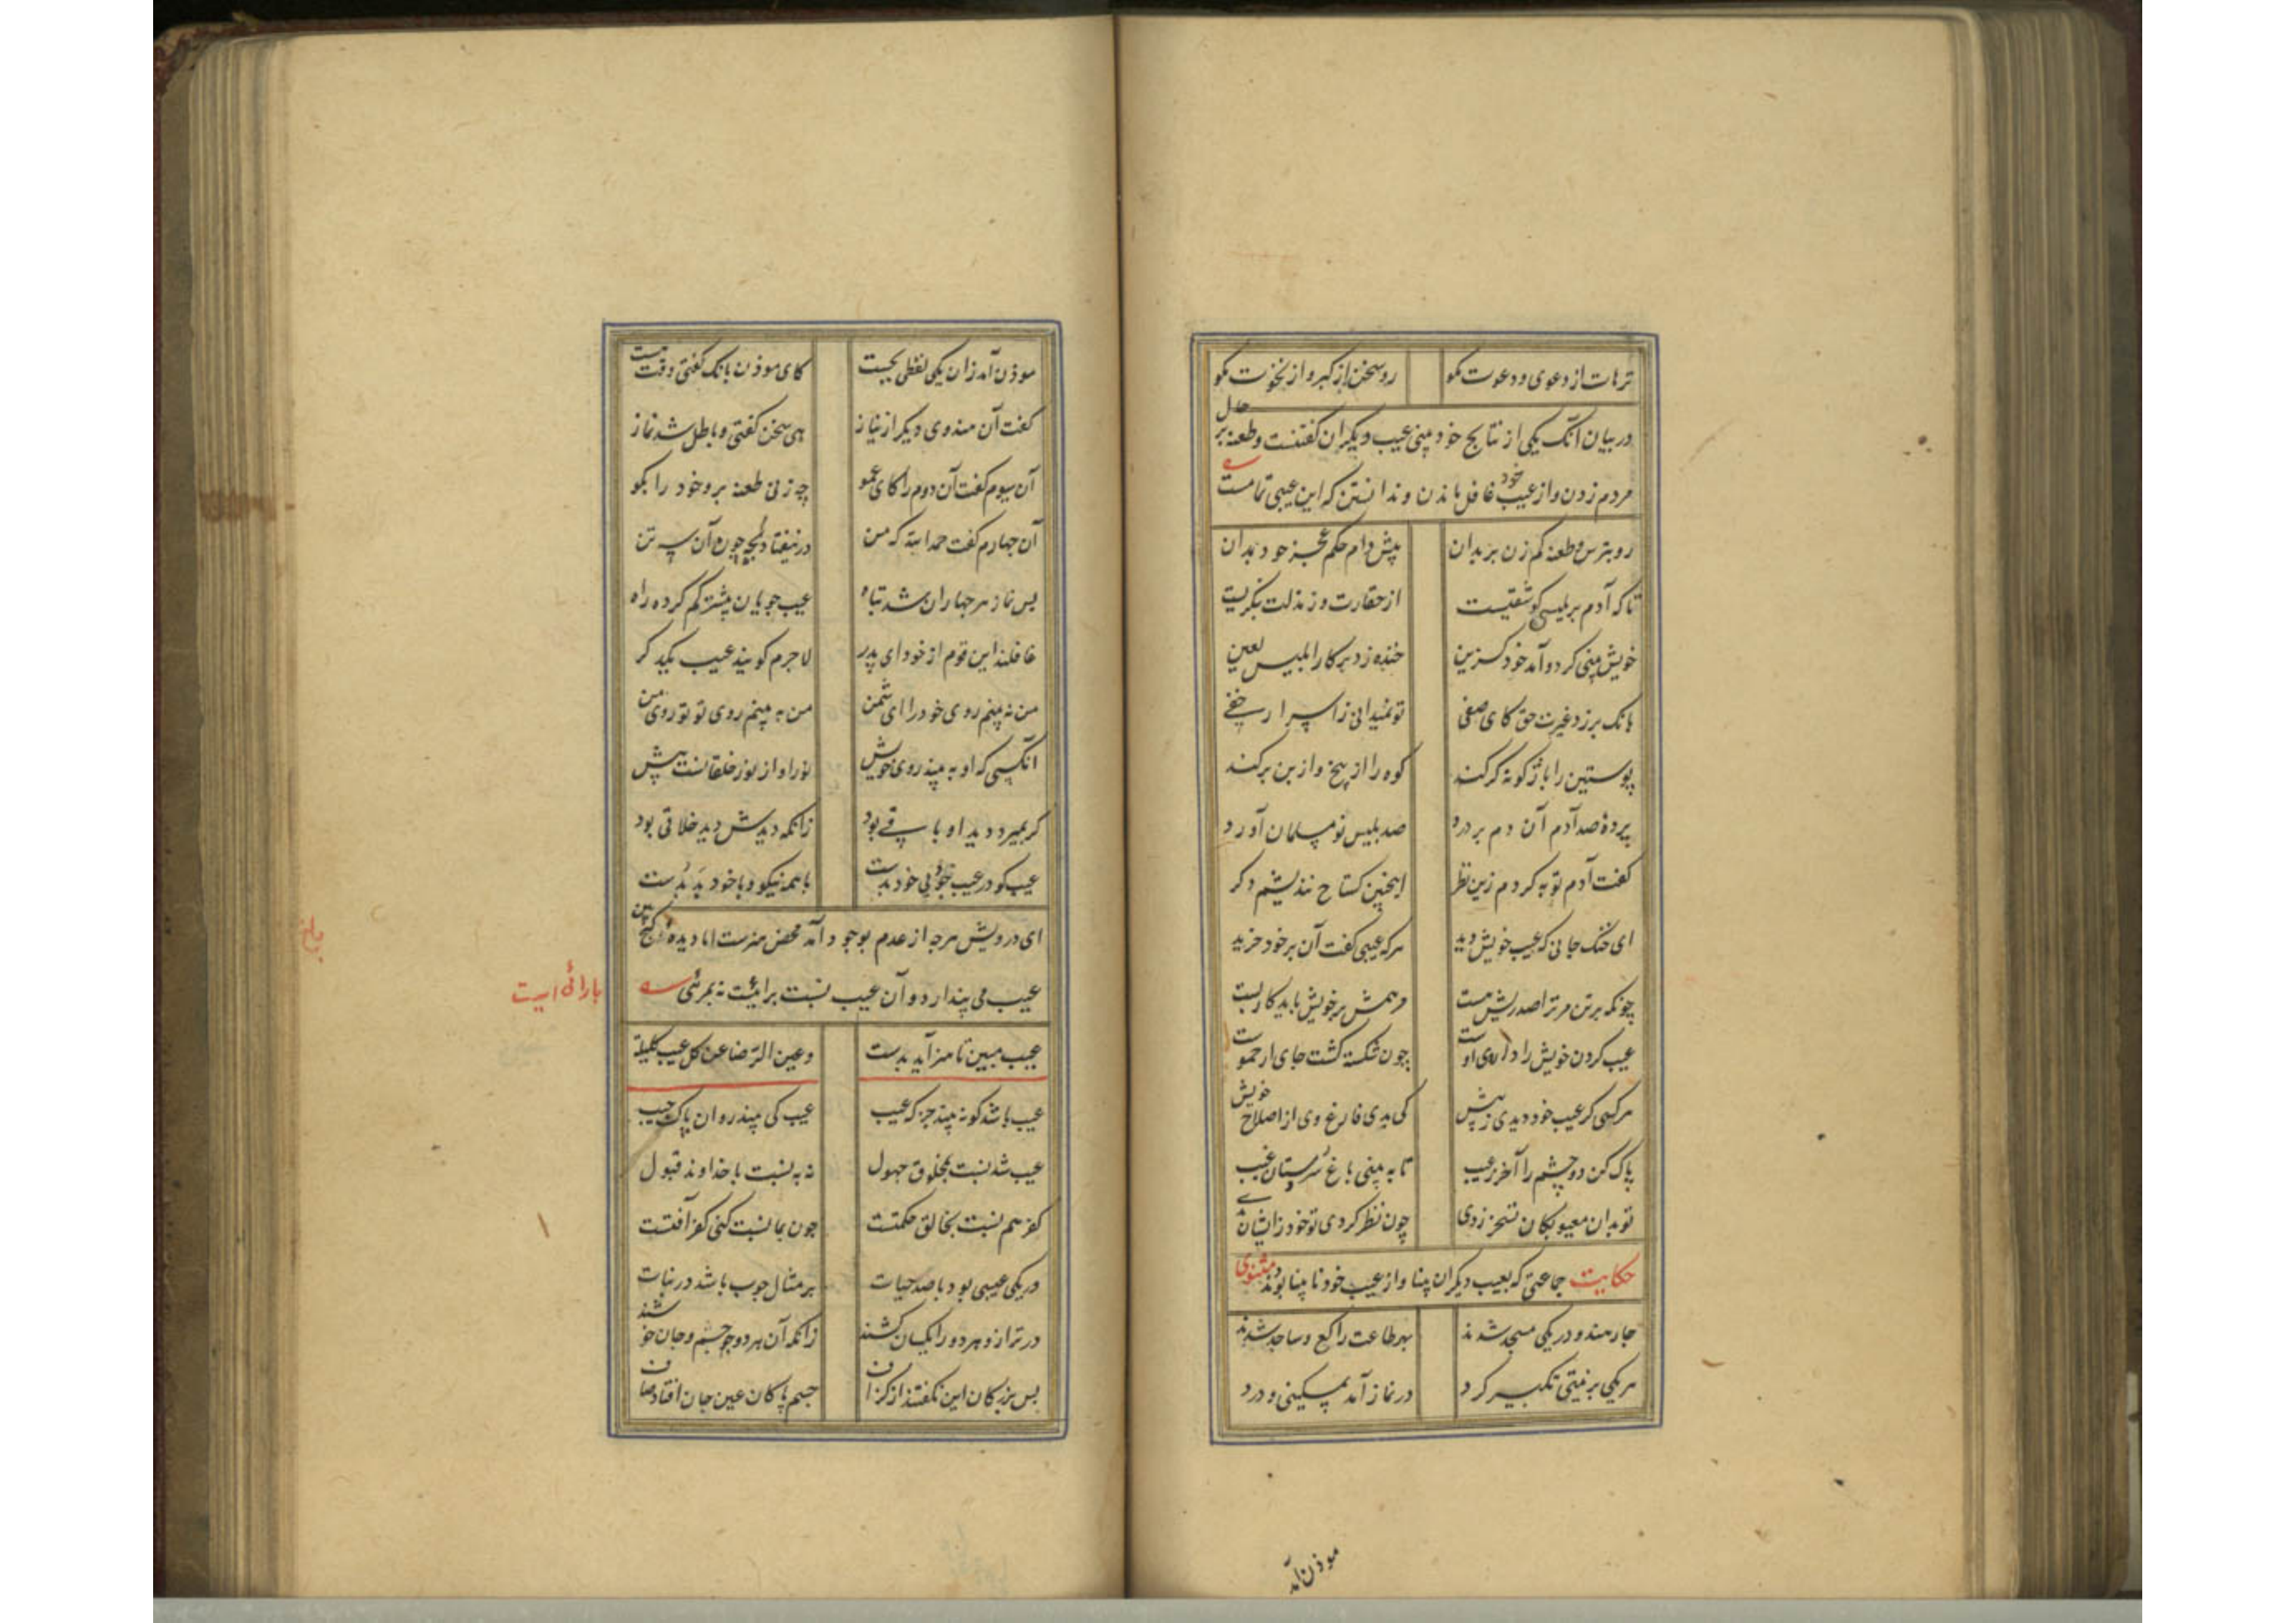 ترهات از دعوی و دعوت مگو رو سخن از کبر و از نخوت مگو
در بیان آنک یکی از نتایج خود بینی عیب دیگران گفتنست و طعنه بر حال
مردم زدن و از عیب خود غافل ماندن و ندانستن که این عیبی تمامست
رو بترس و طعنه کم زن بر بدان پیش دام حکم عجز خود بدان
تا که آدم بر بلیسی کو شقیست از حقارت وز مذلت بنگریست
خویش بینی کرد و آمد خود گزین خنده زد بر کار ابلیس لعین
بانک بر زد غیرت حق کای صفی تو نمیدانی ز اسرار خفی
پوستین را باژگونه گر کند کوه را از بیخ و از بن بر کند
پردهٔ صد آدم آن دم بر درد صد بلیس نو مسلمان آورد
گفت آدم توبه کردم زین نظر اینچنین گستاخ نندیشم دگر
ای خنک جانی که عیب خویش دید هرکه عیبی گفت آن بر خود خرید
چونکه بر تن مر ترا صد ریش هست مرهمش بر خویش باید کار بست
عیب کردن خویش را داروی اوست چون شکسته گشت جای ارحموست
هر کسی گر عیب خود دیدی ز پیش کی بدی فارغ وی از اصلاح خویش
پاک کن دو چشم را آخر ز عیب تا به بینی باغ و سرستان غیب
تو بدان معیوبکان تسخر زدی چون نظر کردی تو خود زایشان بدی
حکایت جماعتی که بعیب دیگران بینا و از عیب خود نابینا بودند مثنوی
چار هندو در یکی مسجد شدند بهر طاعت راکع و ساجد شدند
هر یکی بر نیتی تکبیر کرد در نماز آمد بمسکینی و درد
موذن آمد
موذن آمد زان یکی لفظی بجست کای موذن بانک گفتی وقت هست
گفت آن هندوی دیگر از نیاز هی سخن گفتی و باطل شد نماز
آن سیوم گفت آن دوم را کای عمو چه زنی طعنه برو خود را بگو
آن چهارم گفت حمدالله که من در نیفتادم بچه چون آن سه تن
پس نماز هر چهاران شد تباه عیب جویان بیشتر گم کرده راه
غافلند این قوم از خود ای پدر لاجرم گویند عیب یکدگر
من نه بینم روی خود را ای شمن من به بینم روی تو تو روی من
آنکسی که او به بیند روی خویش نور او از نور خلقانست پیش
گر بمیرد دید او باقی بود زانکه دیدش دید خلاقی بود
ای درویش هرچه از عدم بوجود آمد محض هنرست اما دیدهٔ کج بین
عیب می پندارد و آن عیب نسبت برائیست نه بمرئی
بارائی است
عیب مبین تا هنر آید بدست وعین الرضا عن کل عیب کلیلة
عیب باشد کو نه بیند جز که عیب عیب کی بیند روان پاک جیب
عیب شد نسبت بمخلوق جهول نه به نسبت با خداوند قبول
کفر هم نسبت بخالق حکمتست چون بما نسبت کنی کفر آفتست
در یکی عیبی بود با صد حیات بر مثال چوب باشد در نبات
در ترازو هر دو را یکسان کشند زانکه آن هر دو چو جسم و جان خوشند
پس بزرگان این نگفتند از گزاف جسم پاکان عین جان افتاد صاف